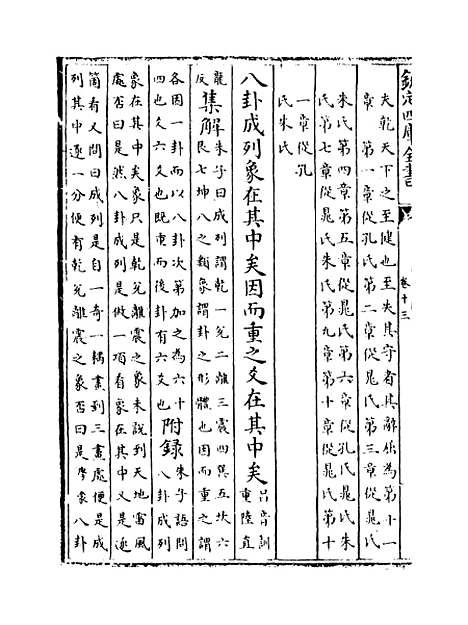 欽定四庫全書
卷十三
夫乾天下之至健也至失其守者其辭屈為第十一
章　第一章從孔氏第二章從晁氏第三章從晁氏
朱氏第四章第五章從晁氏第六章從孔氏晁氏朱
氏第七章從晁氏朱氏第九章第十章從晁氏第十
一章從孔
氏朱氏
八卦成列象在其中矣因而重之爻在其中矣
呂音訓
重陸直
龍
反
集解
朱子曰成列謂乾一兌二離三震四巽五坎六
艮七坤八之類象謂卦之形體也因而重之謂
各因一卦而以八卦次第加之為六十
四也爻六爻也既重而後卦有六爻也
附録
朱子語問
八卦成列
象在其中矣象只是乾兌離震之象未說到天地雷風
處否曰是然八卦成列是做一項看象在其中又是逐
箇看又問曰成列是自一奇一耦畫到三畫處便是成
列其中逐一分便有乾兌離震之象否曰是學家八卦